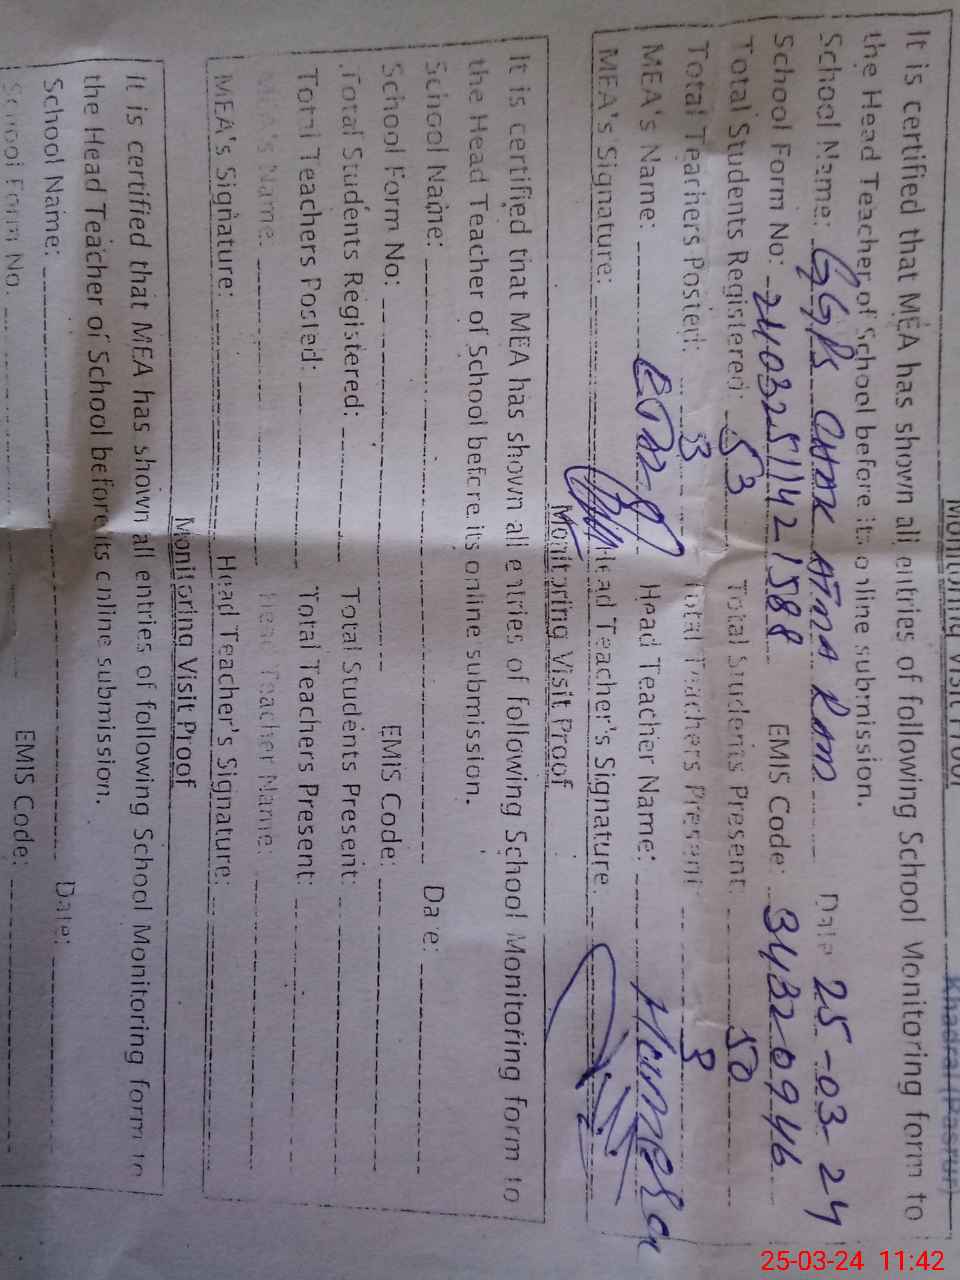 Monitoring Visit Proof
Khadral (Pasrur)
It is certified that MEA has shown all entries of following School Monitoring form to
the Head Teacher of School before its online submission.
School Name: GGPS CHAK ATMA RAM Date 25-03-24
School Form No: 24032511421588 EMIS Code: 34320946
Total Students Registered: 53 Total Students Present: 50
Total Teachers Posted: 3 Total Teachers Present 3
MEA's Name: Head Teacher Name: Humera
MEA's Signature: Head Teacher's Signature:
Monitoring Visit Proof
It is certified that MEA has shown all entries of following School Monitoring form to
the Head Teacher of School before its online submission.
School Name: Date:
School Form No: EMIS Code:
Total Students Registered: Total Students Present:
Total Teachers Posted: Total Teachers Present:
MEA's Name: Head Teacher Name:
MEA's Signature: Head Teacher's Signature:
Monitoring Visit Proof
It is certified that MEA has shown all entries of following School Monitoring form to
the Head Teacher of School before its online submission.
School Name: Date:
School Form No. EMIS Code:
25-03-24 11:42